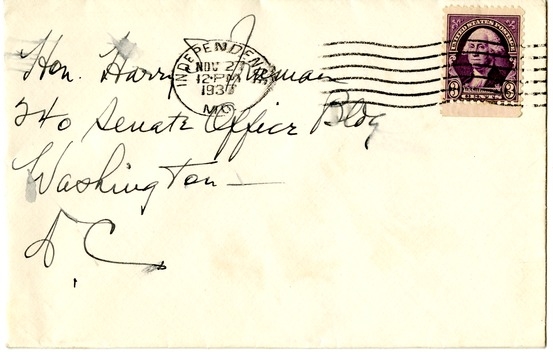 INDEPENDENCE
NOV 2
12-PM
193
MO.
UNITED STATES POSTAGE
3 3
Hon. Harry Truman
240 Senate Office Bldg
Washington —
D.C.